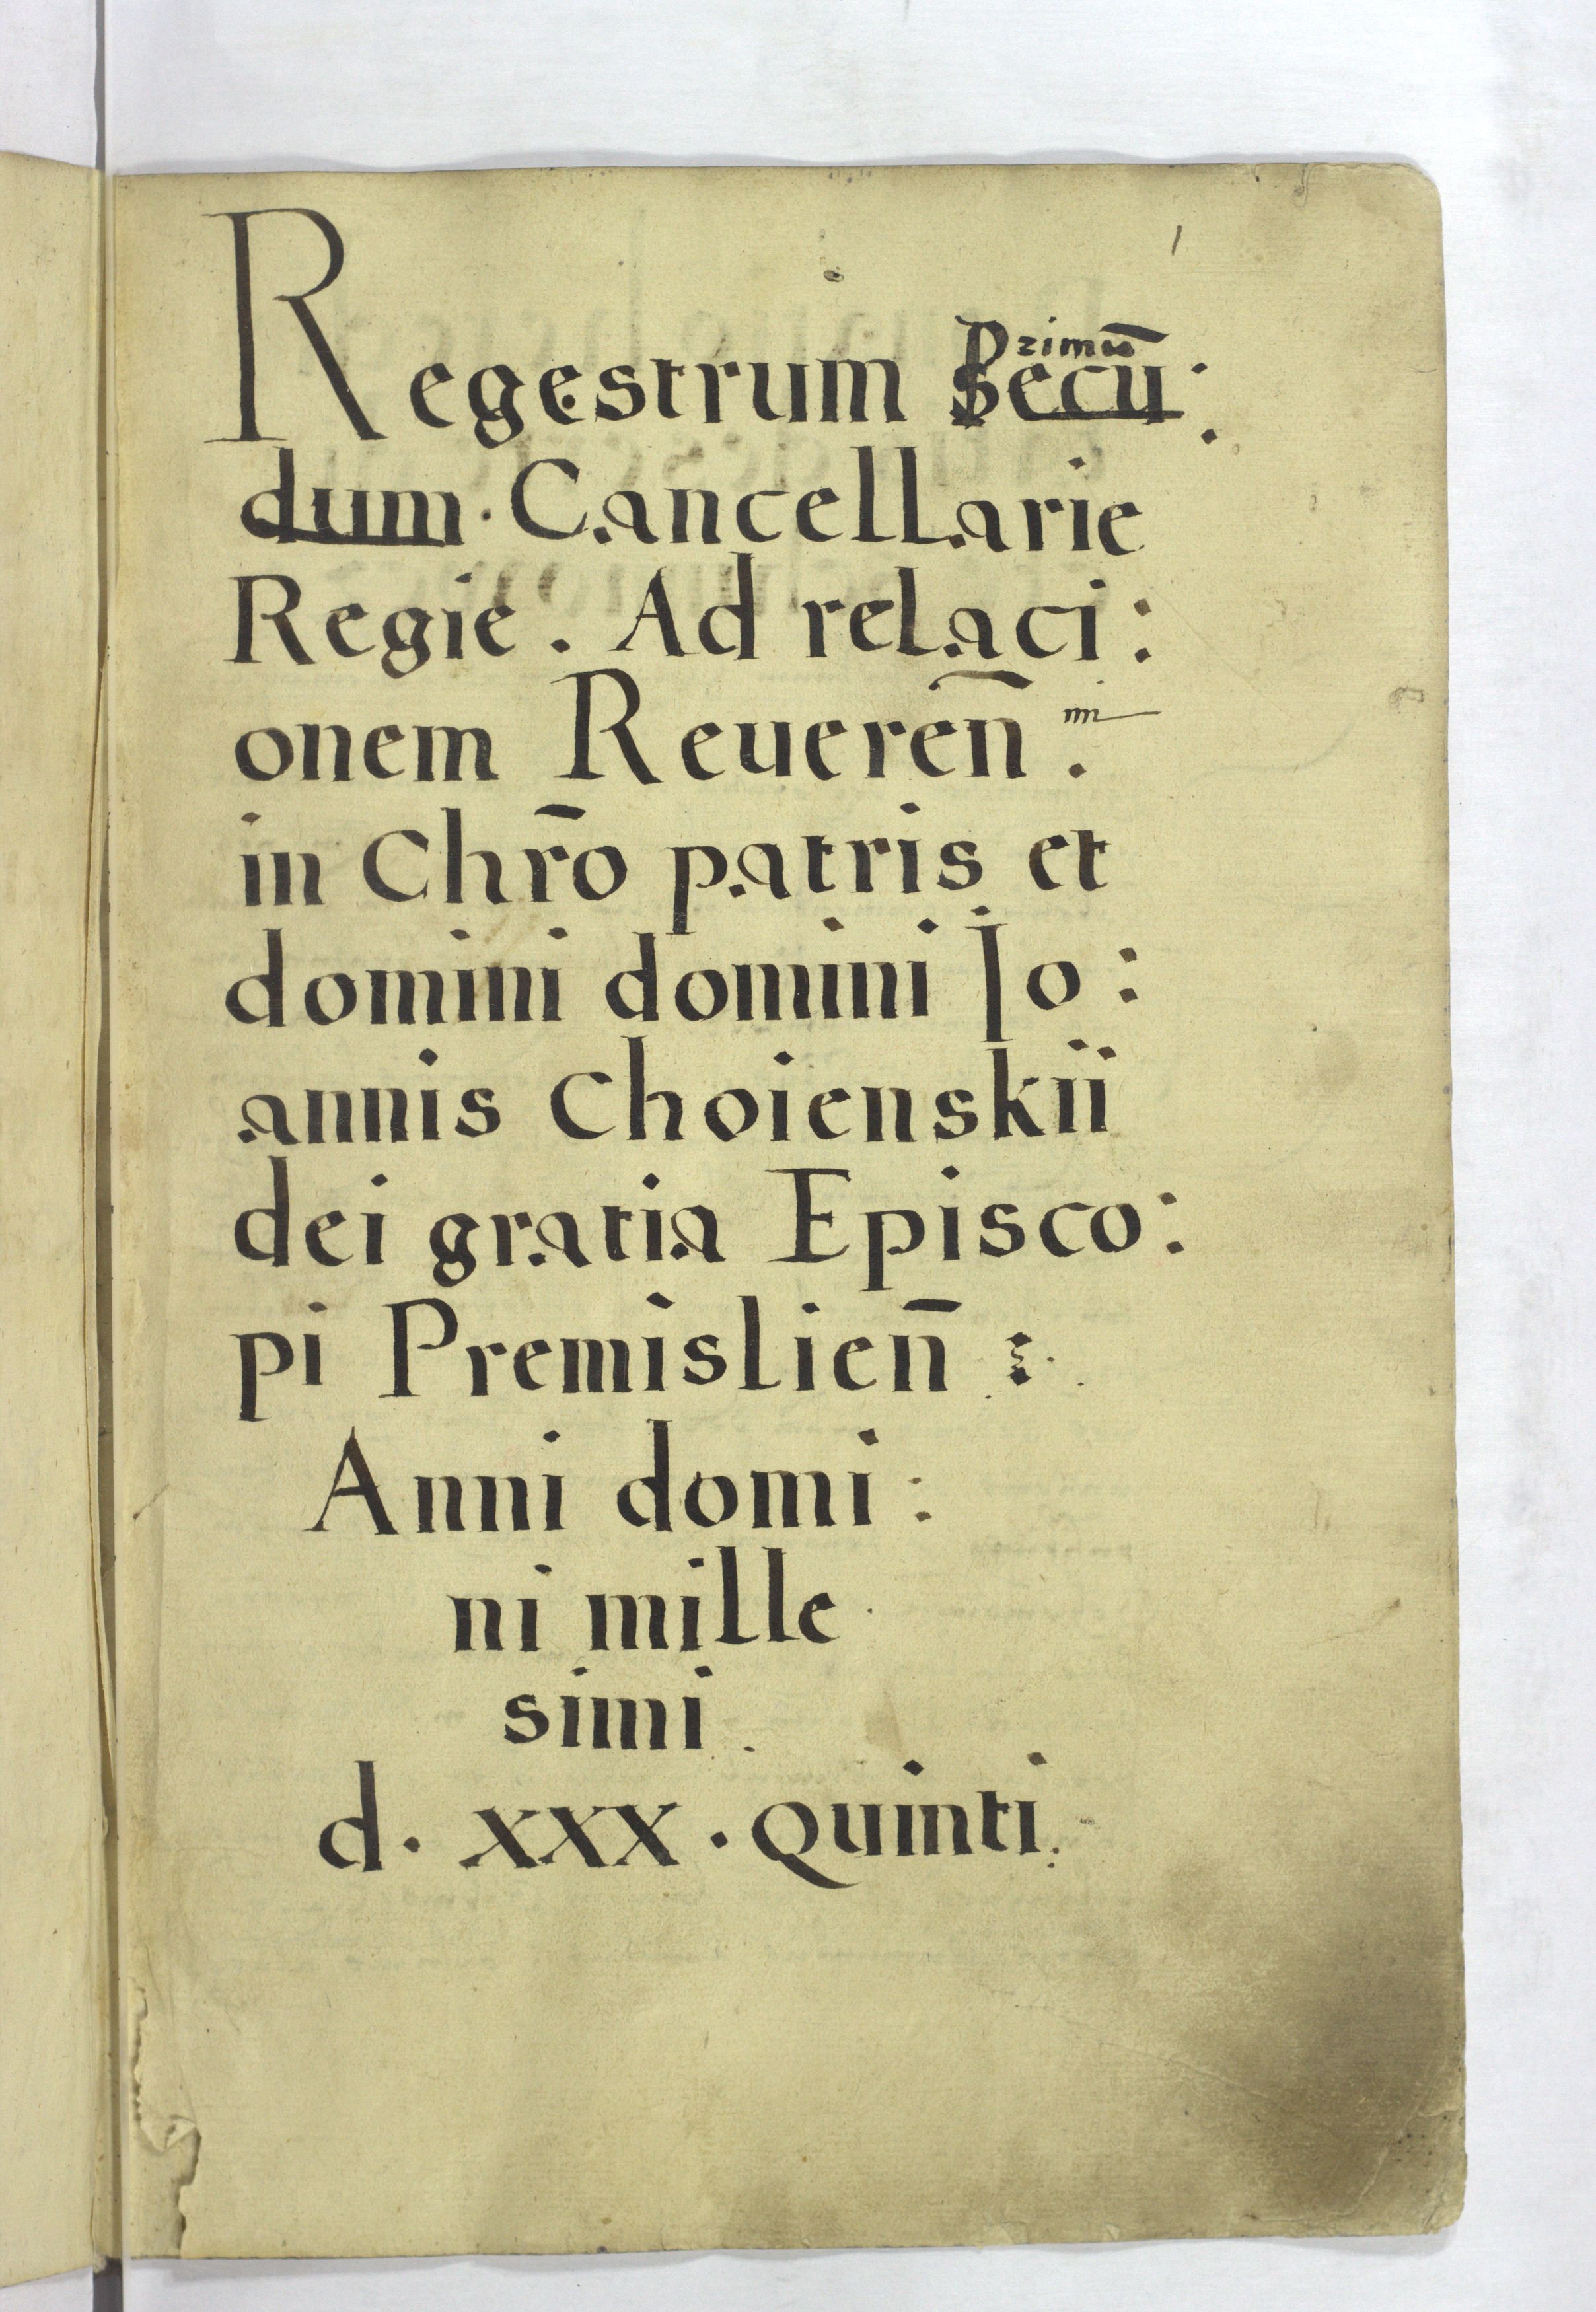 1
Primū
Regestrum Secu:
dum. Cancellarie
Regie. Ad relaci:
onem Reueren̄.
in Chr̄o patris et
domini domini Jo:
annis Choienskii
dei gratia Episco:
pi Premislien̄:
Anni domi:
ni mille
simi.
d. xxx. Quinti.